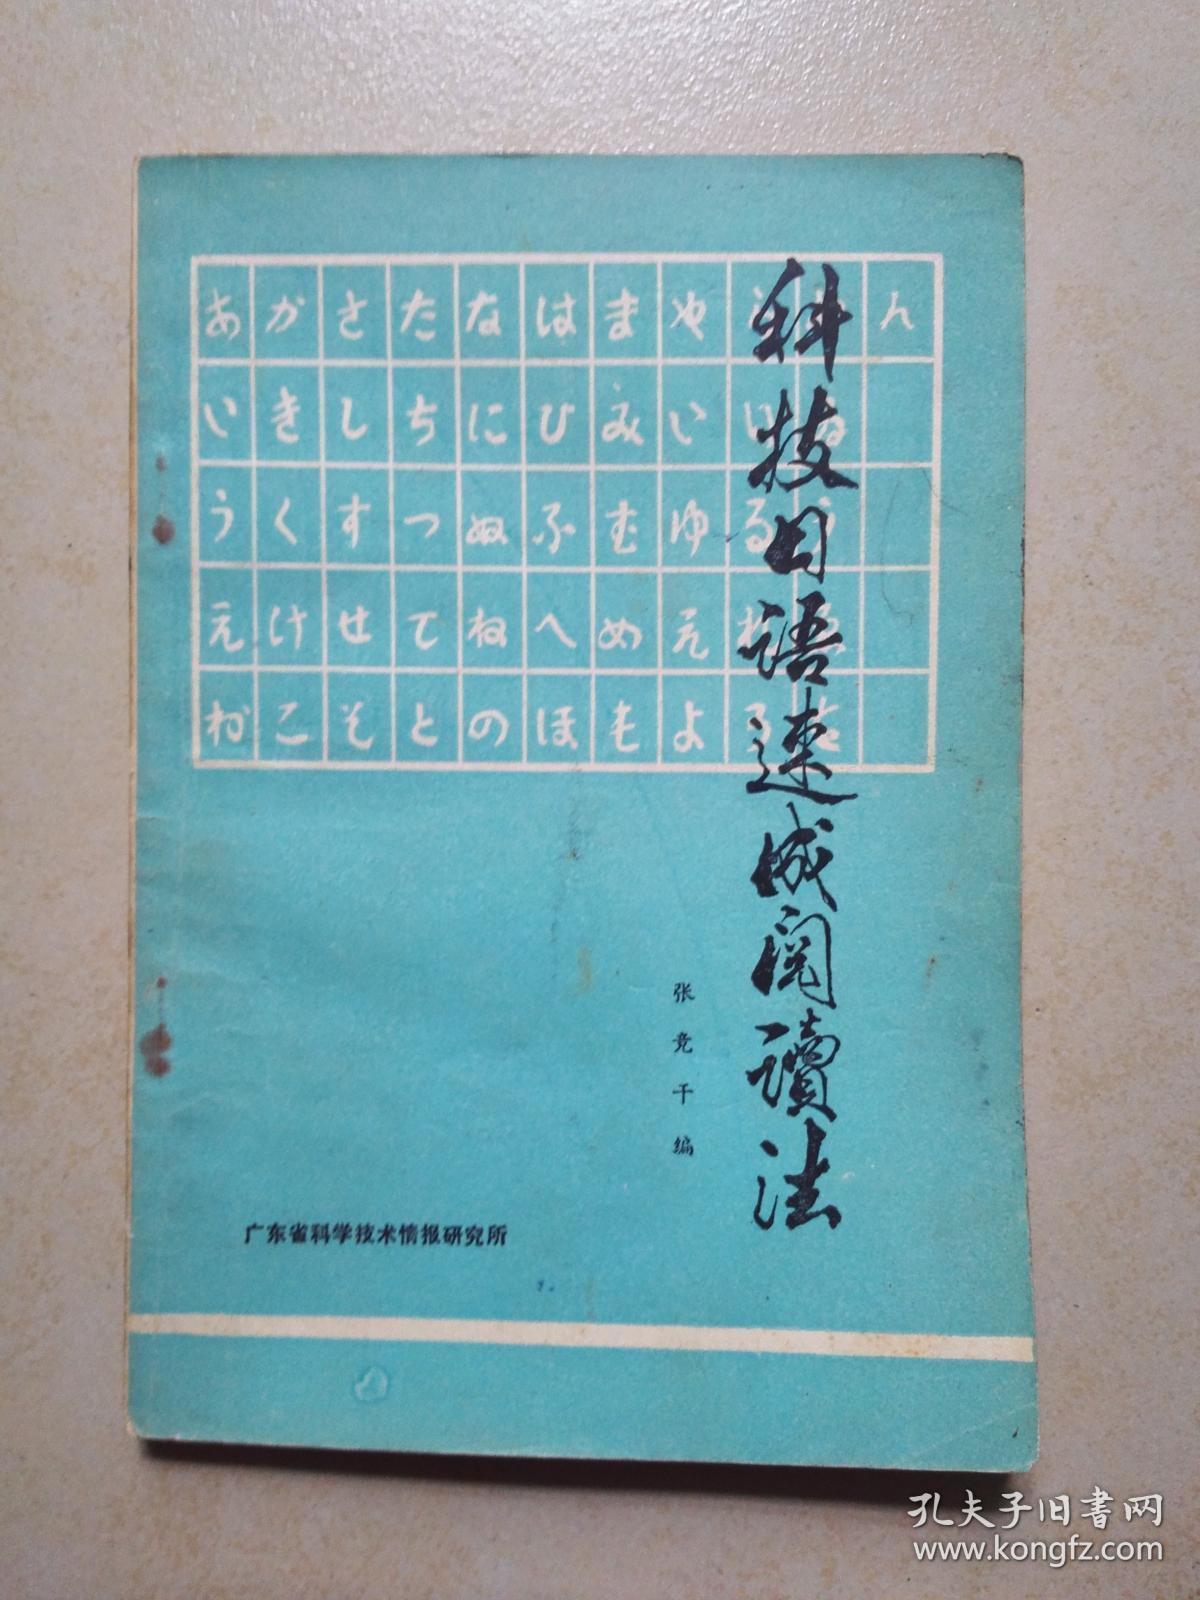 あ か さ た な は ま や ん
い き し ち に ひ み い
う く す つ ぬ ふ む ゆ る
え け せ て ね へ め え
お こ そ と の ほ も よ
科技日语速成阅讀法
张竞干编
广东省科学技术情报研究所
孔夫子旧书网
www.kongfz.com